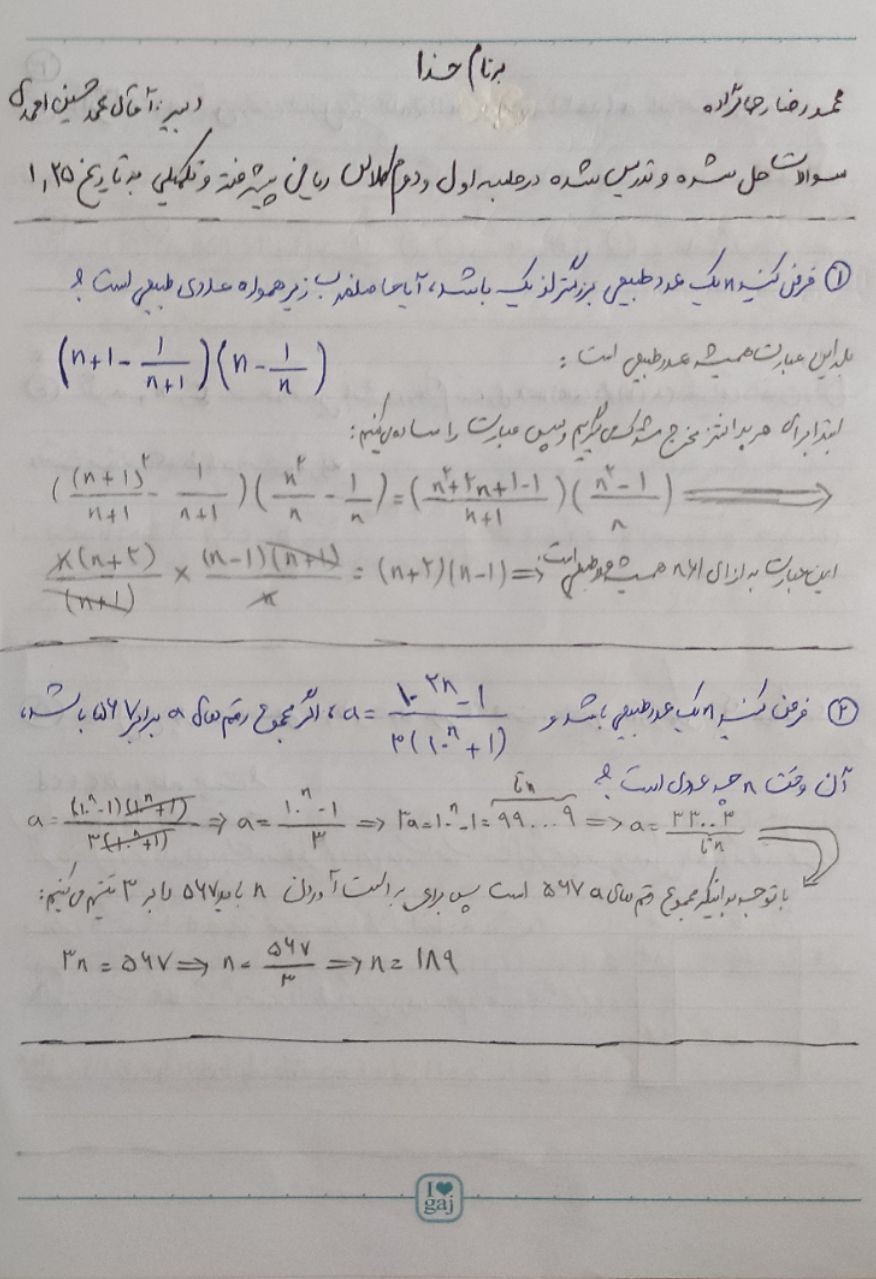 بنام خدا
محمدرضا رجائزاده دبیر: آقای محمدحسین احمدی
سوالات حل شده و تدریس شده در جلسه اول و دوم کلاس ریاضی پیشرفته و تکمیلی به تاریخ ۱,۲۵
① فرض کنید n یک عدد طبیعی بزرگتر از یک باشد، آیا حاصلضرب زیر همواره عددی طبیعی است؟
(n+1 - 1/(n+1))(n - 1/n)
بله این عبارت همیشه عدد طبیعی است:
ابتدا برای هر پرانتز مخرج مشترک می‌گیریم و سپس عبارت را ساده می‌کنیم:
((n+1)^۲/(n+1) - 1/(n+1))(n^۲/n - 1/n) = ((n^۲+۲n+1-1)/(n+1))((n^۲-1)/n) ⟹
n(n+۲)/(n+1) × (n-1)(n+1)/n = (n+۲)(n-1) ⟹ این عبارت به ازای n>1 همیشه عدد طبیعی است
② فرض کنید n یک عدد طبیعی باشد و a = (۱۰^۲n - 1)/(۳(۱۰^n + 1))، اگر مجموع رقم های a برابر ۵۶۷ باشد،
آن وقت n چه عددی است؟
a = (۱۰^n-1)(۱۰^n+1)/(۳(۱۰^n+1)) ⟹ a = (۱۰^n-1)/۳ ⟹ ۳a = ۱۰^n-1 = ۹۹...۹ (n تا) ⟹ a = ۳۳...۳ (n تا)
با توجه به اینکه مجموع رقم های a ۵۶۷ است پس برای بدست آوردن n باید ۵۶۷ را بر ۳ تقسیم می‌کنیم:
۳n = ۵۶۷ ⟹ n = ۵۶۷/۳ ⟹ n = ۱۸۹
I♥
gaj